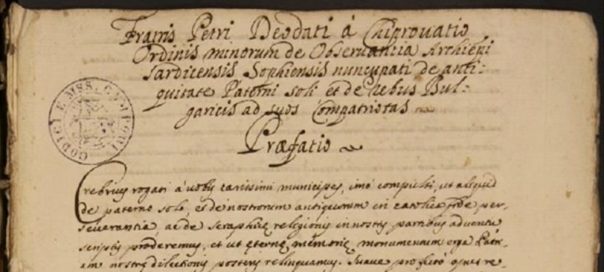 Fratris Petri Deodati á Chiprovatio
Ordinis minorum de Observantia Archiepi
Sardicensis Sophiensis nuncupati de anti-
quitate Paterni soli et de rebus Bul-
garicis ad suos Compatriotas
Præfatio
CODICI E MSS.
Crebrius rogati á vobis carissimi municipes, imó compulsi, ut aliquid
de paterno solo, et de nostrorum antiquorum in catolica fide per-
severantia, ac de Seraphicæ religionis in nostris partibus adventu
scriptis proderemus, et ut æternæ memoriæ monumentum erga Patri-
am nostræ dilectionis posteris relinquamus. Suave profectó opus